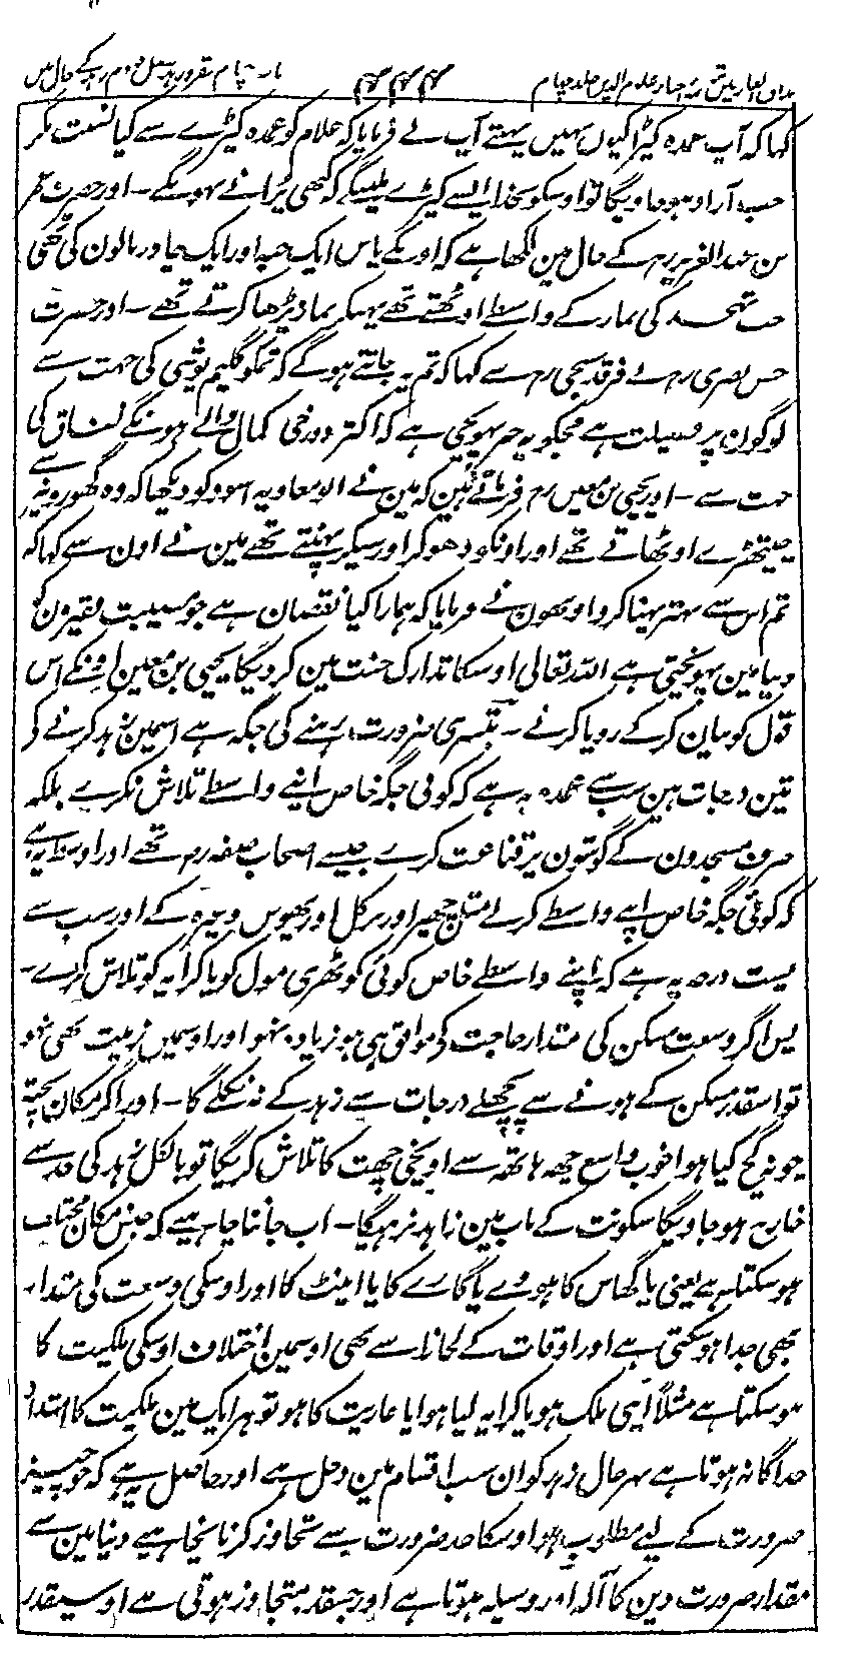 مذاق العارفین ترجمہ احیاء علوم الدین جلد چہارم ۴۴۴ باب چہارم فقر و زہد فصل دوم زہد کے حال میں
کہا کہ آپ عمدہ کپڑا کیوں نہیں پہنتے آپ نے فرمایا کہ غلام کو عمدہ کپڑے سے کیا نسبت مگر
جب آزاد ہو جاویگا تو اوسکو بخدا ایسے کپڑے ملینگے کہ کبھی پرانے نہونگے۔ اور حضرت عمر
بن عبد العزیز رہ کے حال مین لکھا ہے کہ اونکے پاس ایک جبہ اور ایک چادر بالون کی تھی
جب تہجد کی نماز کے واسطے اوٹھتے تھے پہنکر نماز پڑھا کرتے تھے۔ اور حضرت
حسن بصری رہ نے فرقد سبخی رہ سے کہا کہ تم یہ جانتے ہوگے کہ تمکو گلیم پوشی کی جہت سے
لوگون پر فضیلت ہے مجکو یہ خبر پہونچی ہے کہ اکثر دوزخی کمل والے ہونگے نفاق کی
جہت سے۔ اور یحیی بن معین رہ فرماتے ہین کہ مین نے ابو معاویہ اسود کو دیکھا کہ وہ گھورونپر سے
چیتھڑے اوٹھاتے تھے اور اونکو دھو کر اور سیکر پہنتے تھے مین نے اون سے کہا کہ
تم اس سے بہتر پہنا کرو اونھون نے فرمایا کہ ہمارا کیا نقصان ہے جو مصیبت فقیرون کو
دنیا مین پہونچتی ہے اللہ تعالی اوسکا تدارک جنت مین کر دیگا یحیی بن معین اونکے اس
قول کو بیان کر کے رویا کرتے۔ تیسری ضرورت رہنے کی جگہ ہے اسمین زہد کرنے کے
تین درجات ہین سب سے عمدہ یہ ہے کہ کوئی جگہ خاص اپنے واسطے تلاش نکرے بلکہ
صرف مسجدون کے گوشون پر قناعت کرے جیسے اصحاب صفہ رہ تھے اور اوسط یہ ہے
کہ کوئی جگہ خاص اپنے واسطے کر لے مثلا چھپر اور نرکل اور پھوس وغیرہ کے اور سب سے
پست درجہ یہ ہے کہ اپنے واسطے خاص کوئی کوٹھری مول کو یا کرایہ کو تلاش کرے۔
پس اگر وسعت مسکن کی مقدار حاجت کے موافق ہی ہو زیادہ نہو اور اوسمین زینت بھی نہو
تو اسقدر مسکن کے ہونے سے پچھلے درجات سے زہد کے نہ نکلے گا۔ اور اگر مکان پختہ
چونہ گچ کیا ہوا خوب واسع چھ ہاتھہ سے اونچی چھت کا تلاش کریگا تو بالکل زہد کی حد سے
خارج ہو جاویگا سکونت کے باب مین زاہد نرہیگا۔ اب جاننا چاہیے کہ جنس مکان مختلف
ہو سکتا ہے یعنی یا گھاس کا ہووے یا گارے کا یا اینٹ کا اور اوسکی وسعت کی مقدار
بھی جدا ہو سکتی ہے اور اوقات کے لحاظ سے بھی اوسمین اختلاف اوسکی ملکیت کا
ہو سکتا ہے مثلاً اپنی ملک ہو یا کرایہ لیا ہوا یا عاریت کا ہو تو ہر ایک مین ملکیت کا امتداد
جداگانہ ہوتا ہے بہر حال زہد کو ان سب اقسام مین دخل ہے اور حاصل یہ ہے کہ جو چیز
ضرورت کے لیے مطلوب ہو اوسکا حد ضرورت سے تجاوز کرنا نچاہیے دنیا مین سے
مقدار ضرورت دین کا آلہ اور وسیلہ ہوتا ہے اور جسقدر متجاوز ہوتی ہے اوسیقدر